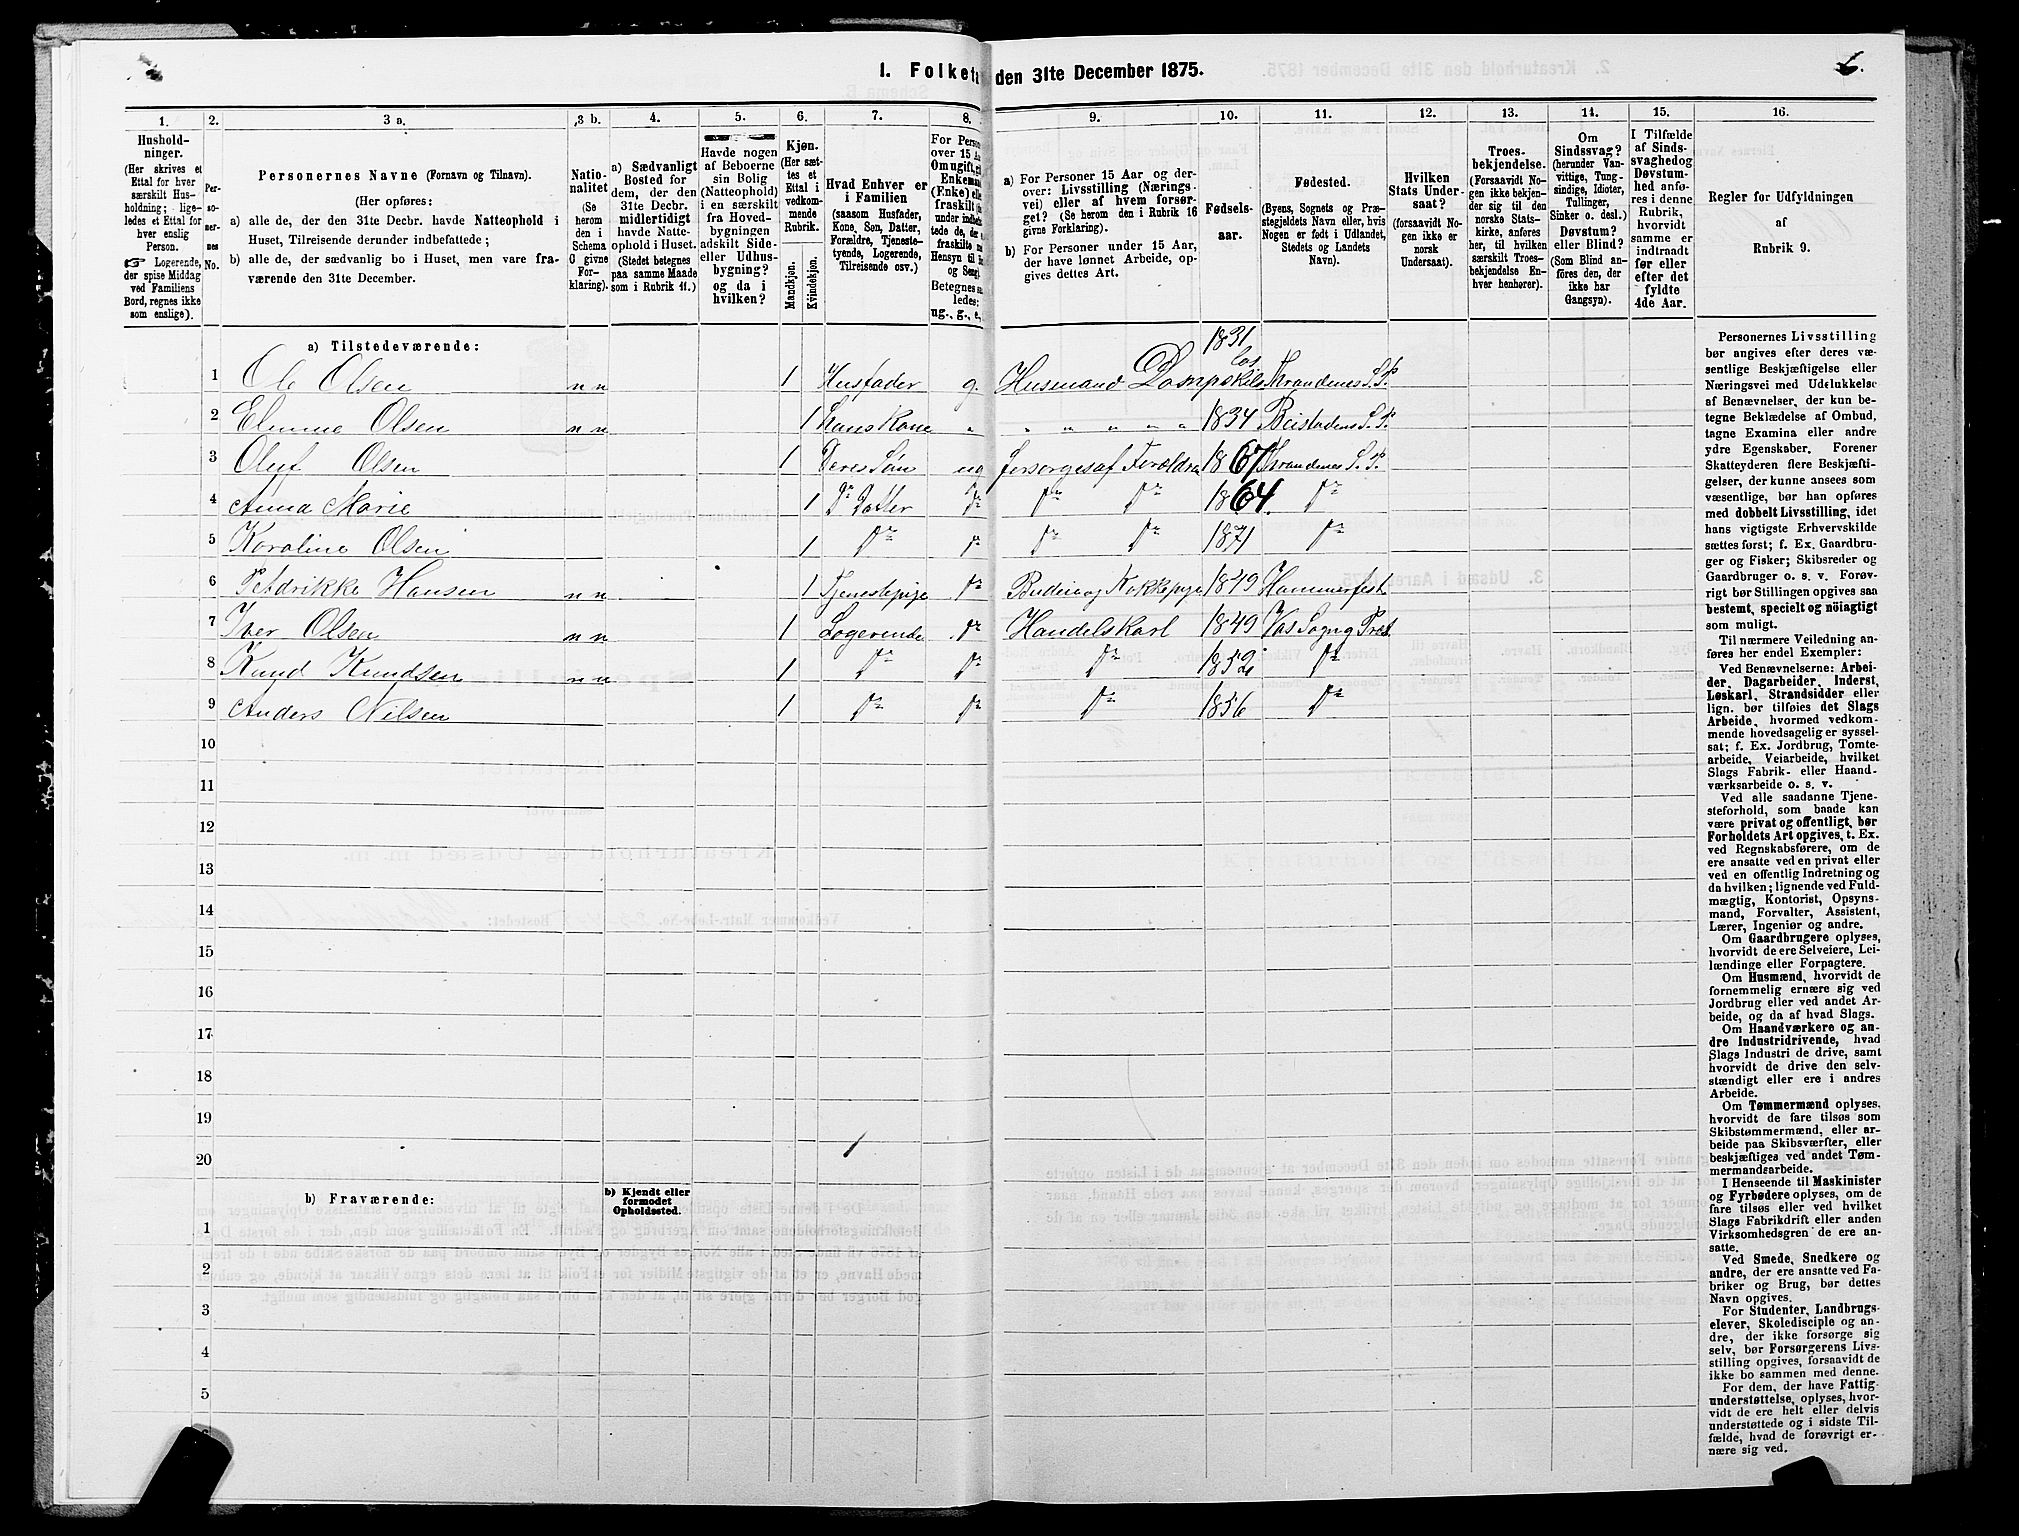 1. Folketæ den 31te December 1875.
6.
1.
2.
3 a.
3 b.
4.
5.
6.
7.
8.
9.
10.
11.
12.
13.
14.
15.
16.
Hushold-
ninger.
(Her skrives et
Ettal for hver
særskilt Hus-
holdning; lige-
ledes et Ettal for
hver enslig
Person.
☞ Logerende,
der spise Middag
ved Familiens
Bord, regnes ikke
som enslige).
Per-
so-
ner-
nes
No.
Personernes Navne (Fornavn og Tilnavn).
(Her opføres:
a) alle de, der den 31te Decbr. havde Natteophold i
Huset, Tilreisende derunder indbefattede;
b) alle de, der sædvanlig bo i Huset, men vare fra-
værende den 31te December.
Natio-
nalitet
(Se
herom
den i
Schema
O givne
For-
klaring).
a) Sædvanligt
Bosted for
dem, der den
31te Decbr.
midlertidigt
havde Natte-
ophold i Huset.
(Stedet betegnes
paa samme Maade
som i Rubrik 11.)
Havde nogen
af Beboerne
sin Bolig
(Natteophold)
i en særskilt
fra Hoved-
bygningen
adskilt Side-
eller Udhus-
bygning?
og da i
hvilken?
Kjøn.
(Her sæt-
tes et
Ettal i
vedkom-
mende
Rubrik.
Mandkjøn.
Kvindekjøn.
Hvad Enhver er
i Familien
(saasom Husfader,
Kone, Søn, Datter,
Forældre, Tjeneste-
tyende, Logerende,
Tilreisende osv.)
For Person
over 15 Aa
Omugift, gi
Enkeman
(Enke) elle
fraskilt o
under indbet
tede de, der
fraskilte m
Hensyn til
og Seng)
Betegnes saa
ledes:
ug., g., e.,
a) For Personer 15 Aar og der-
over: Livsstilling (Nærings-
vei) eller af hvem forsør-
get? (Se herom den i Rubrik 16
givne Forklaring).
b) For Personer under 15 Aar,
der have lønnet Arbeide, op-
gives dettes Art.
Fødsels-
aar.
Fødested.
(Byens, Sognets og Præ-
stegjeldets Navn eller, hvis
Nogen er født i Udlandet,
Stedets og Landets
Navn).
Hvilken
Stats Under-
saat?
(forsaavidt No-
gen ikke er
norsk
Undersaat).
Troes-
bekjendelse.
(Forsaavidt No-
gen ikke bekjen-
der sig til den
norske Stats-
kirke, anføres
her, til hvilken
særskilt Troes-
bekjendelse En-
hver henhører).
Om
Sindssvag?
(herunder Van-
vittige, Tung-
sindige, Idioter,
Tullinger,
Sinker o. desl.)
Døvstum?
eller Blind?
(Som Blind an-
føres den, der
ikke har
Gangsyn).
I Tilfælde
af Sinds-
svaghed og
Døvstum-
hed anfø-
res i denne
Rubrik,
hvorvidt
samme er
indtraadt
før eller
efter det
fyldte
4de Aar.
Regler for Udfyldningen
af
Rubrik 9.
a) Tilstedeværende:
1831
1 Ole Olsen n n 1 Husfader g. Husmand Dampskibs los Thrandenes S. P.
2 Olsen n n 1 Hans Kone " " " " " " 1834 Beistadens S. P.
3 Oluf Olsen 1 Deres Søn ug forsorges af Foreldre 1867 Thrandenes S. P.
4 Anna Marie 1 Do Datter Do Do Do 1864 Do
5 Karoline Olsen 1 Do Do Do Do 1871 Do
6 Petdrikke Hansen n n 1 Tjenestepige Do Budeie og Kokkepige 1849 Hammerfest
7 Iver Olsen n n 1 Logerende Do Handelskarl 1849 Vos Sogn og Præst.
8 Knud Knudsen n n 1 Do Do Do 1852 Do
9 Anders Nilsen 1 Do Do Do 1856 Do
10
11
12
13
14
15
16
17
18
19
20
b) Fraværende:
b) Kjendt eller
formodet
Opholdssted.
1
2
3
4
5
Personernes Livsstilling
bør angives efter deres væ-
sentlige Beskjæftigelse eller
Næringsvei med Udelukkelse
af Benævnelser, der kun be-
tegne Beklædelse af Ombud,
tagne Examina eller andre
ydre Egenskaber. Forener
Skatteyderen flere Beskjæfti-
gelser, der kunne ansees som
væsentlige, bør han opføres
med dobbelt Livsstilling, idet
hans vigtigste Erhvervskilde
sættes først; f. Ex. Gaardbru-
ger og Fisker; Skibsreder og
Gaardbruger o. s. v. Forøv-
rigt bør Stillingen opgives saa
bestemt, specielt og nöiagtigt
som muligt.
Til nærmere Veiledning an-
føres her endel Exempler:
Ved Benævnelserne: Arbei-
der, Dagarbeider, Inderst,
Løskarl, Strandsidder eller
lign. bør tilføies det Slags
Arbeide, hvormed vedkom-
mende hovedsagelig er syssel-
sat; f. Ex. Jordbrug, Tomte-
arbeide, Veiarbeide, hvilket
Slags Fabrik- eller Haand-
værksarbeide o. s. v.
Ved alle saadanne Tjene-
steforhold, som baade kan
være privat og offentligt, bør
Forholdets Art opgives, t. Ex.
ved Regnskabsførere, om de
ere ansatte ved en privat eller
ved en offentlig Indretning og
da hvilken; lignende ved Fuld-
mægtig, Kontorist, Opsyns-
mand, Forvalter, Assistent,
Lærer, Ingeniør og andre.
Om Gaardbrugere oplyses,
hvorvidt de ere Selveiere, Lei-
lændinge eller Forpagtere.
Om Husmænd, hvorvidt de
fornemmelig ernære sig ved
Jordbrug eller ved andet Ar-
beide, og da af hvad Slags.
Om Haandværkere og an-
dre Industridrivende, hvad
Slags Industri de drive, samt
hvorvidt de drive den selv-
stændigt eller ere i andres
Arbeide.
Om Tømmermænd oplyses,
hvorvidt de fare tilsøs som
Skibstømmermænd, eller ar-
beide paa Skibsværfter, eller
beskjæftiges ved andet Tøm-
mermandsarbeide.
I Henseende til Maskinister
og Fyrbødere oplyses, om de
fare tilsøs eller ved hvilket
Slags Fabrikdrift eller anden
Virksomhedsgren de ere an-
satte.
Ved Smede, Snedkere og
andre, der ere ansatte ved Fa-
briker og Brug, bør dettes
Navn opgives.
For Studenter, Landbrugs-
elever, Skoledisciple og an-
dre, der ikke forsørge sig
selv, bør Forsørgerens Livs-
stilling opgives, forsaavidt de
ikke bo sammen med denne.
For dem, der have Fattig-
understøttelse, oplyses, hvor-
vidt de ere helt eller delvis
understøttede og i sidste Til-
fælde, hvad de forøvrigt er-
nære sig ved.